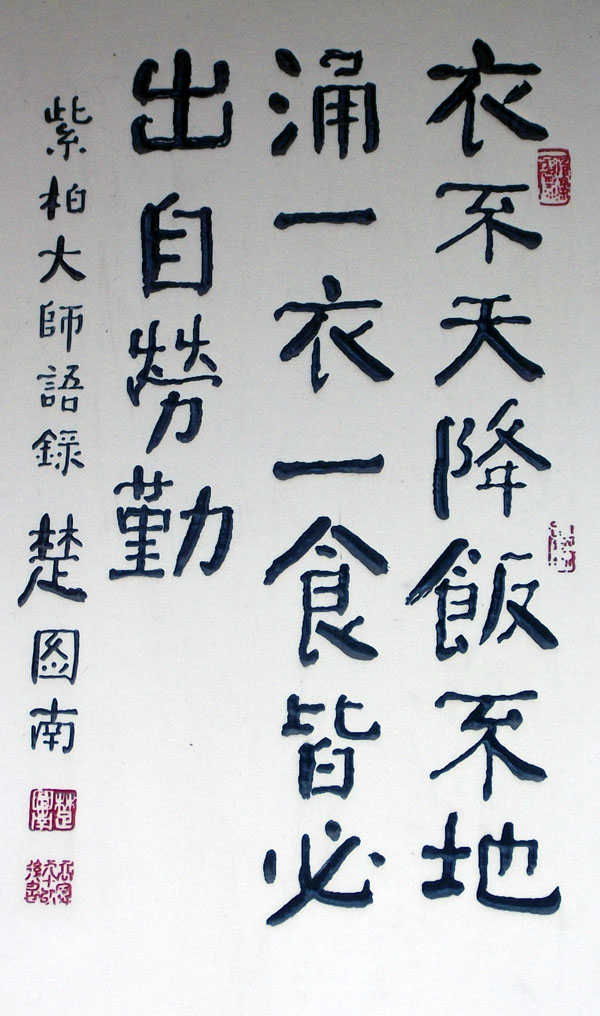 衣不天降飯不地
涌一衣一食皆必
出自勞勤
紫柏大師語錄 楚圖南